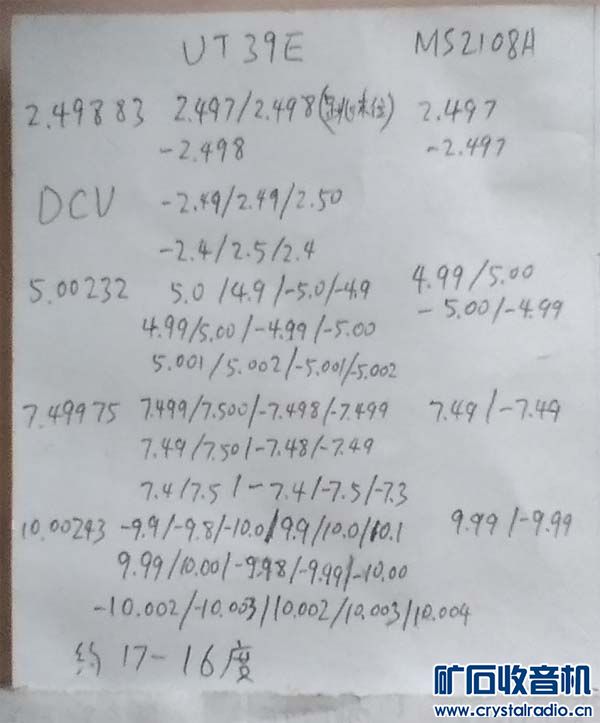 UT39E MS2108A
2.49883 2.497/2.498(跳末位) 2.497
-2.498 -2.497
DCV -2.49/2.49/2.50
-2.4/2.5/2.4
5.00232 5.0/4.9/-5.0/-4.9 4.99/5.00
4.99/5.00/-4.99/-5.00 -5.00/-4.99
5.001/5.002/-5.001/-5.002
7.49975 7.499/7.500/-7.498/-7.499 7.49/-7.49
7.49/7.50/-7.48/-7.49
7.4/7.5/-7.4/-7.5/-7.3
10.00243 -9.9/-9.8/-10.0/9.9/10.0/10.1 9.99/-9.99
9.99/10.00/-9.98/-9.99/-10.00
-10.002/-10.003/10.002/10.003/10.004
约17-16度
矿石收音机
www.crystalradio.cn